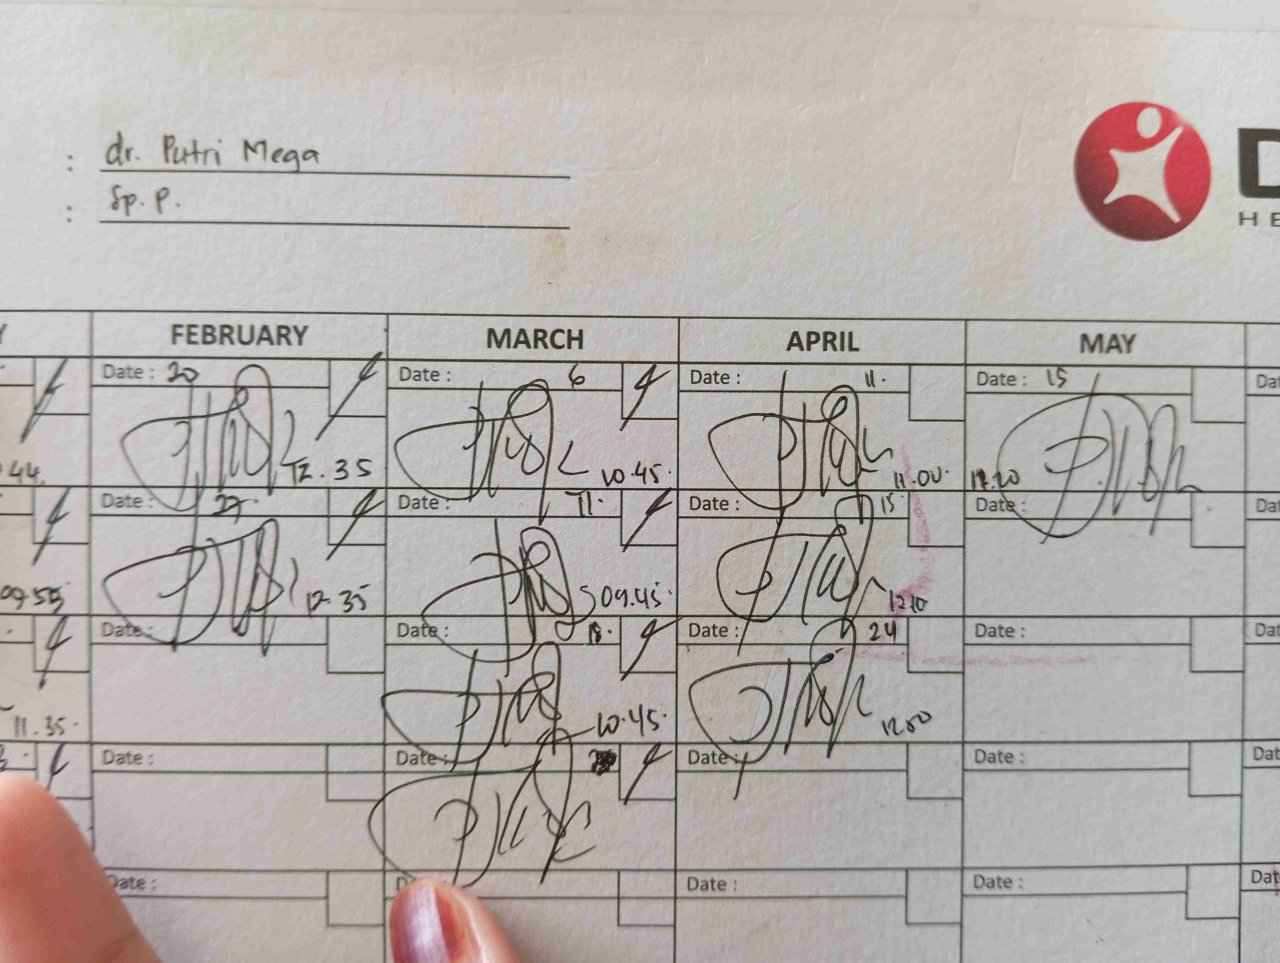 : dr. Putri Mega
: Sp. P.
D
HE
Y FEBRUARY MARCH APRIL MAY
Date : 20 Date : 6 Date : 11. Date : 15 Dat
.44. 12.35 10.45. 11.00. 12.20
Date : 27. Date : 11. Date : 15 Date : Dat
09.55 12.35 09.45. 1210
Date : Date : 18. Date : 24 Date : Dat
11.35 10.45. 1200
Date : Date : Date : Date : Dat
Date : D Date : Date : Dat